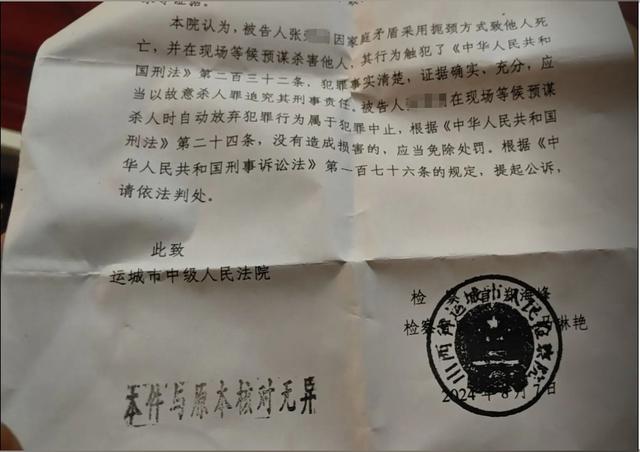 本院认为，被告人张 因家庭矛盾采用扼颈方式致他人死
亡，并在现场等候预谋杀害他人，其行为触犯了《中华人民共和
国刑法》第二百三十二条，犯罪事实清楚，证据确实、充分，应
当以故意杀人罪追究其刑事责任。被告人 在现场等候预谋
杀人时自动放弃犯罪行为属于犯罪中止，根据《中华人民共和国
刑法》第二十四条，没有造成损害的，应当免除处罚。根据《中
华人民共和国刑事诉讼法》第一百七十六条的规定，提起公诉，
请依法判处。
此致
运城市中级人民法院
检 海峰
检察 琳艳
山西省运城市人民检察院
2024年8月7日
本件与原本核对无异